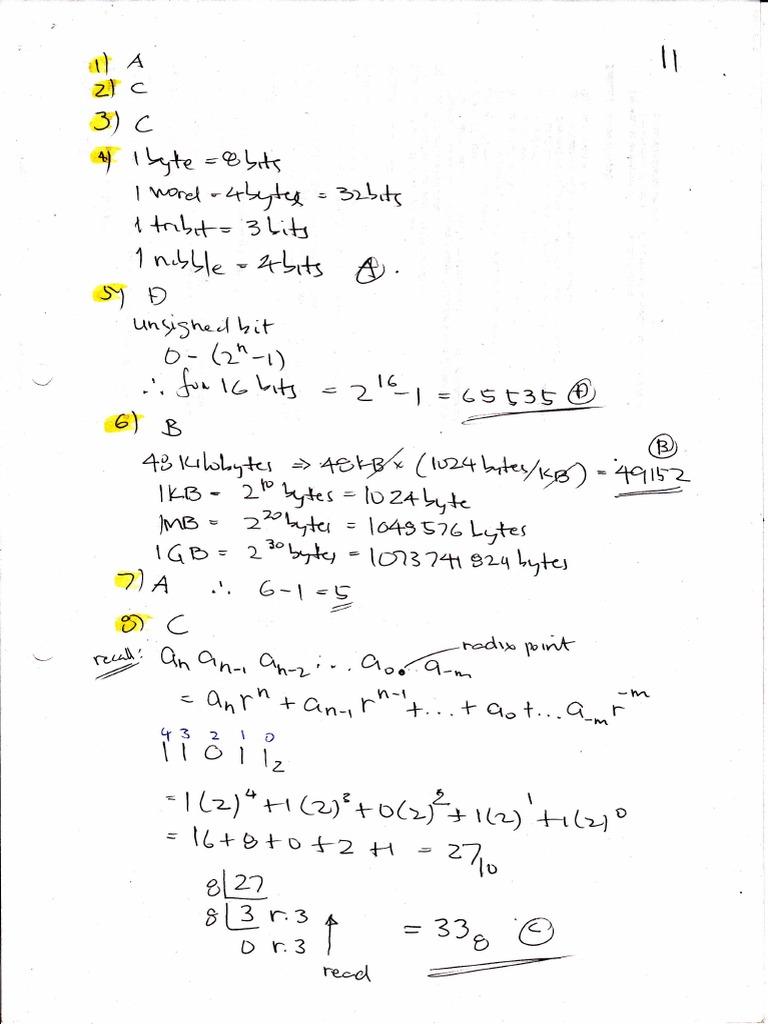 11
1) A
2) C
3) C
4) 1 byte = 8 bits
1 word = 4 bytes = 32 bits
1 tribit = 3 bits
1 nibble = 4 bits Ⓐ.
5) D
unsigned bit
0 - (2ⁿ-1)
∴ for 16 bits = 2¹⁶-1 = 65535 Ⓓ
6) B
48 kilobytes ⇒ 48KB × (1024 bytes/KB) = 49152 Ⓑ
1KB = 2¹⁰ bytes = 1024 byte
1MB = 2²⁰ bytes = 1048576 bytes
1GB = 2³⁰ bytes = 1073741824 bytes
7) A ∴ 6-1=5
8) C
radix point
recall: aₙ aₙ₋₁ aₙ₋₂ ... a₀. a₋ₘ
= aₙrⁿ + aₙ₋₁rⁿ⁻¹ + ... + a₀ + ... a₋ₘr⁻ᵐ
4 3 2 1 0
11011₂
= 1(2)⁴+1(2)³+0(2)²+1(2)¹+1(2)⁰
= 16+8+0+2+1 = 27₁₀
8 27
8 3 r.3
0 r.3
read
= 33₈ Ⓒ